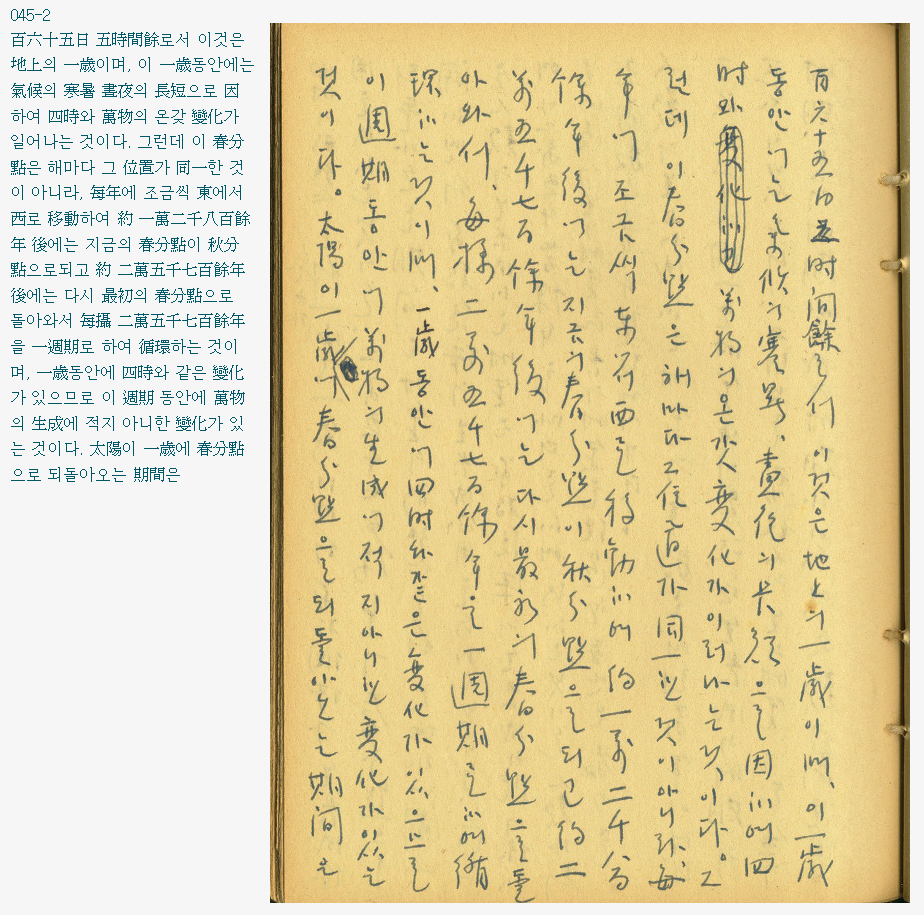 045-2
百六十五日 五時間餘로서 이것은
地上의 一歲이며, 이 一歲동안에는
氣候의 寒暑 晝夜의 長短으로 因
하여 四時와 萬物의 온갖 變化가
일어나는 것이다. 그런데 이 春分
點은 해마다 그 位置가 同一한 것
이 아니라, 每年에 조금씩 東에서
西로 移動하여 約 一萬二千八百餘
年 後에는 지금의 春分點이 秋分
點으로되고 約 二萬五千七百餘年
後에는 다시 最初의 春分點으로
돌아와서 每攝 二萬五千七百餘年
을 一週期로 하여 循環하는 것이
며, 一歲동안에 四時와 같은 變化
가 있으므로 이 週期 동안에 萬物
의 生成에 적지 아니한 變化가 있
는 것이다. 太陽이 一歲에 春分點
으로 되돌아오는 期間은
百六十五日 五時間餘로서 이것은 地上의 一歲이며, 이 一歲
동안에는 氣候의 寒暑, 晝夜의 長短으로 因하여 四
時와 萬物의 온갖 變化가 이러나는 것이다. 그
런데 이 春分點은 해마다 그 位置가 同一한 것이 아니라, 每
年에 조금씩 東에서 西로 移動하여 約 一萬二千八百
餘年 後에는 지금의 春分點이 秋分點으로 되고 約 二
萬五千七百餘年 後에는 다시 最初의 春分點으로 돌
아와서, 每攝 二萬五千七百餘年을 一週期로 하여 循
環하는 것이며, 一歲동안에 四時와 같은 變化가 있으므로
이 週期 동안에 萬物의 生成에 적지 아니한 變化가 있는
것이다. 太陽이 一歲에 春分點으로 되돌아오는 期間은